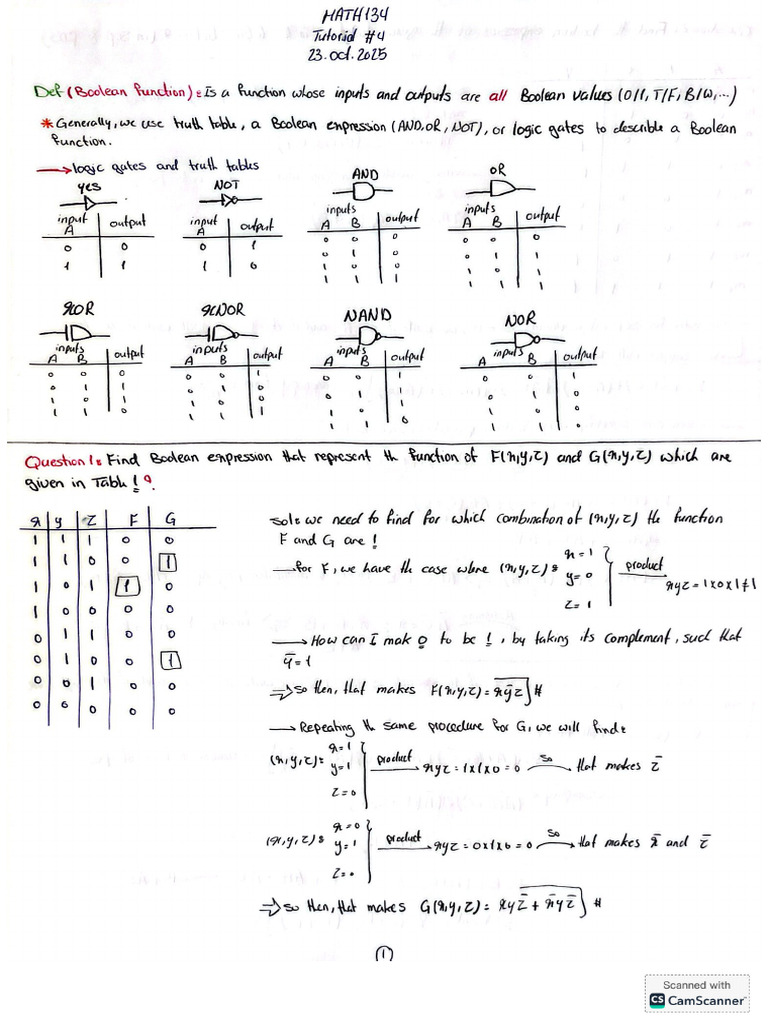 MATH134
Tutorial #4
23.Oct.2025
Def (Boolean Function): Is a function whose inputs and outputs are all Boolean values (0/1, T/F, B/W,...)
* Generally, we use truth table, a Boolean expression (AND, OR, NOT), or logic gates to describe a Boolean
function.
→ logic gates and truth tables
yes NOT AND OR
input output input output inputs output inputs output
A A A B A B
0 0 0 1 0 0 0 0 0 0
1 1 1 0 0 1 0 0 1 1
1 0 0 1 0 1
1 1 1 1 1 1
XOR XNOR NAND NOR
inputs output inputs output inputs output inputs output
A B A B A B A B
0 0 0 0 0 1 0 0 1 0 0 1
0 1 1 0 1 0 0 1 1 0 1 0
1 0 1 1 0 0 1 0 1 1 0 0
1 1 0 1 1 1 1 1 0 1 1 0
Question 1: Find Boolean expression that represent th function of F(x,y,z) and G(x,y,z) which are
given in Table 1?
x y z F G
1 1 1 0 0
1 1 0 0 1
1 0 1 1 0
1 0 0 0 0
0 1 1 0 0
0 1 0 0 1
0 0 1 0 0
0 0 0 0 0
sol: we need to find for which combination of (x,y,z) the function
F and G are 1
→ for F, we have the case where (x,y,z): x=1 y=0 z=1 } product → xyz = 1x0x1≠1
→ How can I mak 0 to be 1, by taking its complement, such that
ȳ=1
⇒ so then, that makes F(x,y,z) = xȳz #
→ Repeating th same procedure for G, we will find:
(x,y,z): x=1 y=1 z=0 } product → xyz = 1x1x0 = 0 so → that makes z̄
(x,y,z): x=0 y=1 z=0 } product → xyz = 0x1x0 = 0 so → that makes x̄ and z̄
⇒ so then, that makes G(x,y,z) = xyz̄ + x̄yz̄ #
1
Scanned with
CS CamScanner